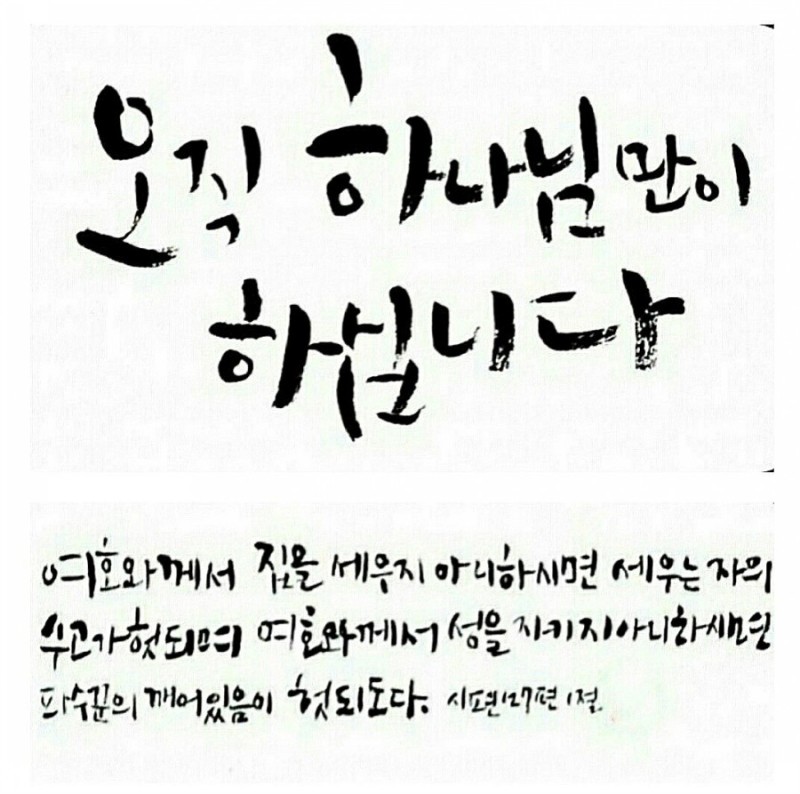 오직 하나님만이
하십니다
여호와께서 집을 세우지 아니하시면 세우는 자의
수고가 헛되며 여호와께서 성을 지키지 아니하시면
파수꾼의 깨어있음이 헛되도다. 시편127편 1절.